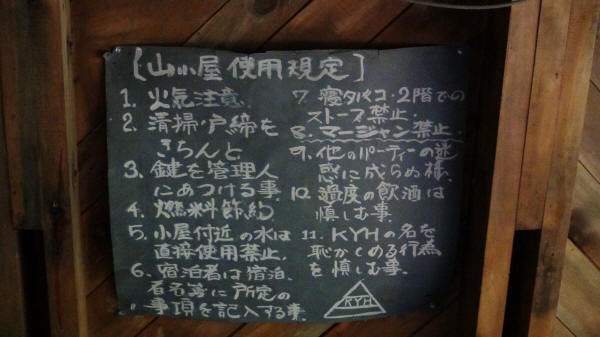 [山小屋使用規定]
1. 火気注意.
2. 清掃・戸締を
きちんと
3. 鍵を管理人
にあつける事.
4. 燃料節約
5. 小屋付近の水は
直接使用禁止.
6. 宿泊者は宿泊.
者名簿に所定の
事項を記入する事.
7. 寝タバコ・2階での
ストーブ禁止.
8. マージャン禁止.
9. 他のパーティーの迷
惑に成らぬ様.
10. 過度の飲酒は
慎しむ事.
11. KYHの名を
恥かしめる行為
を慎しむ事.
KYH